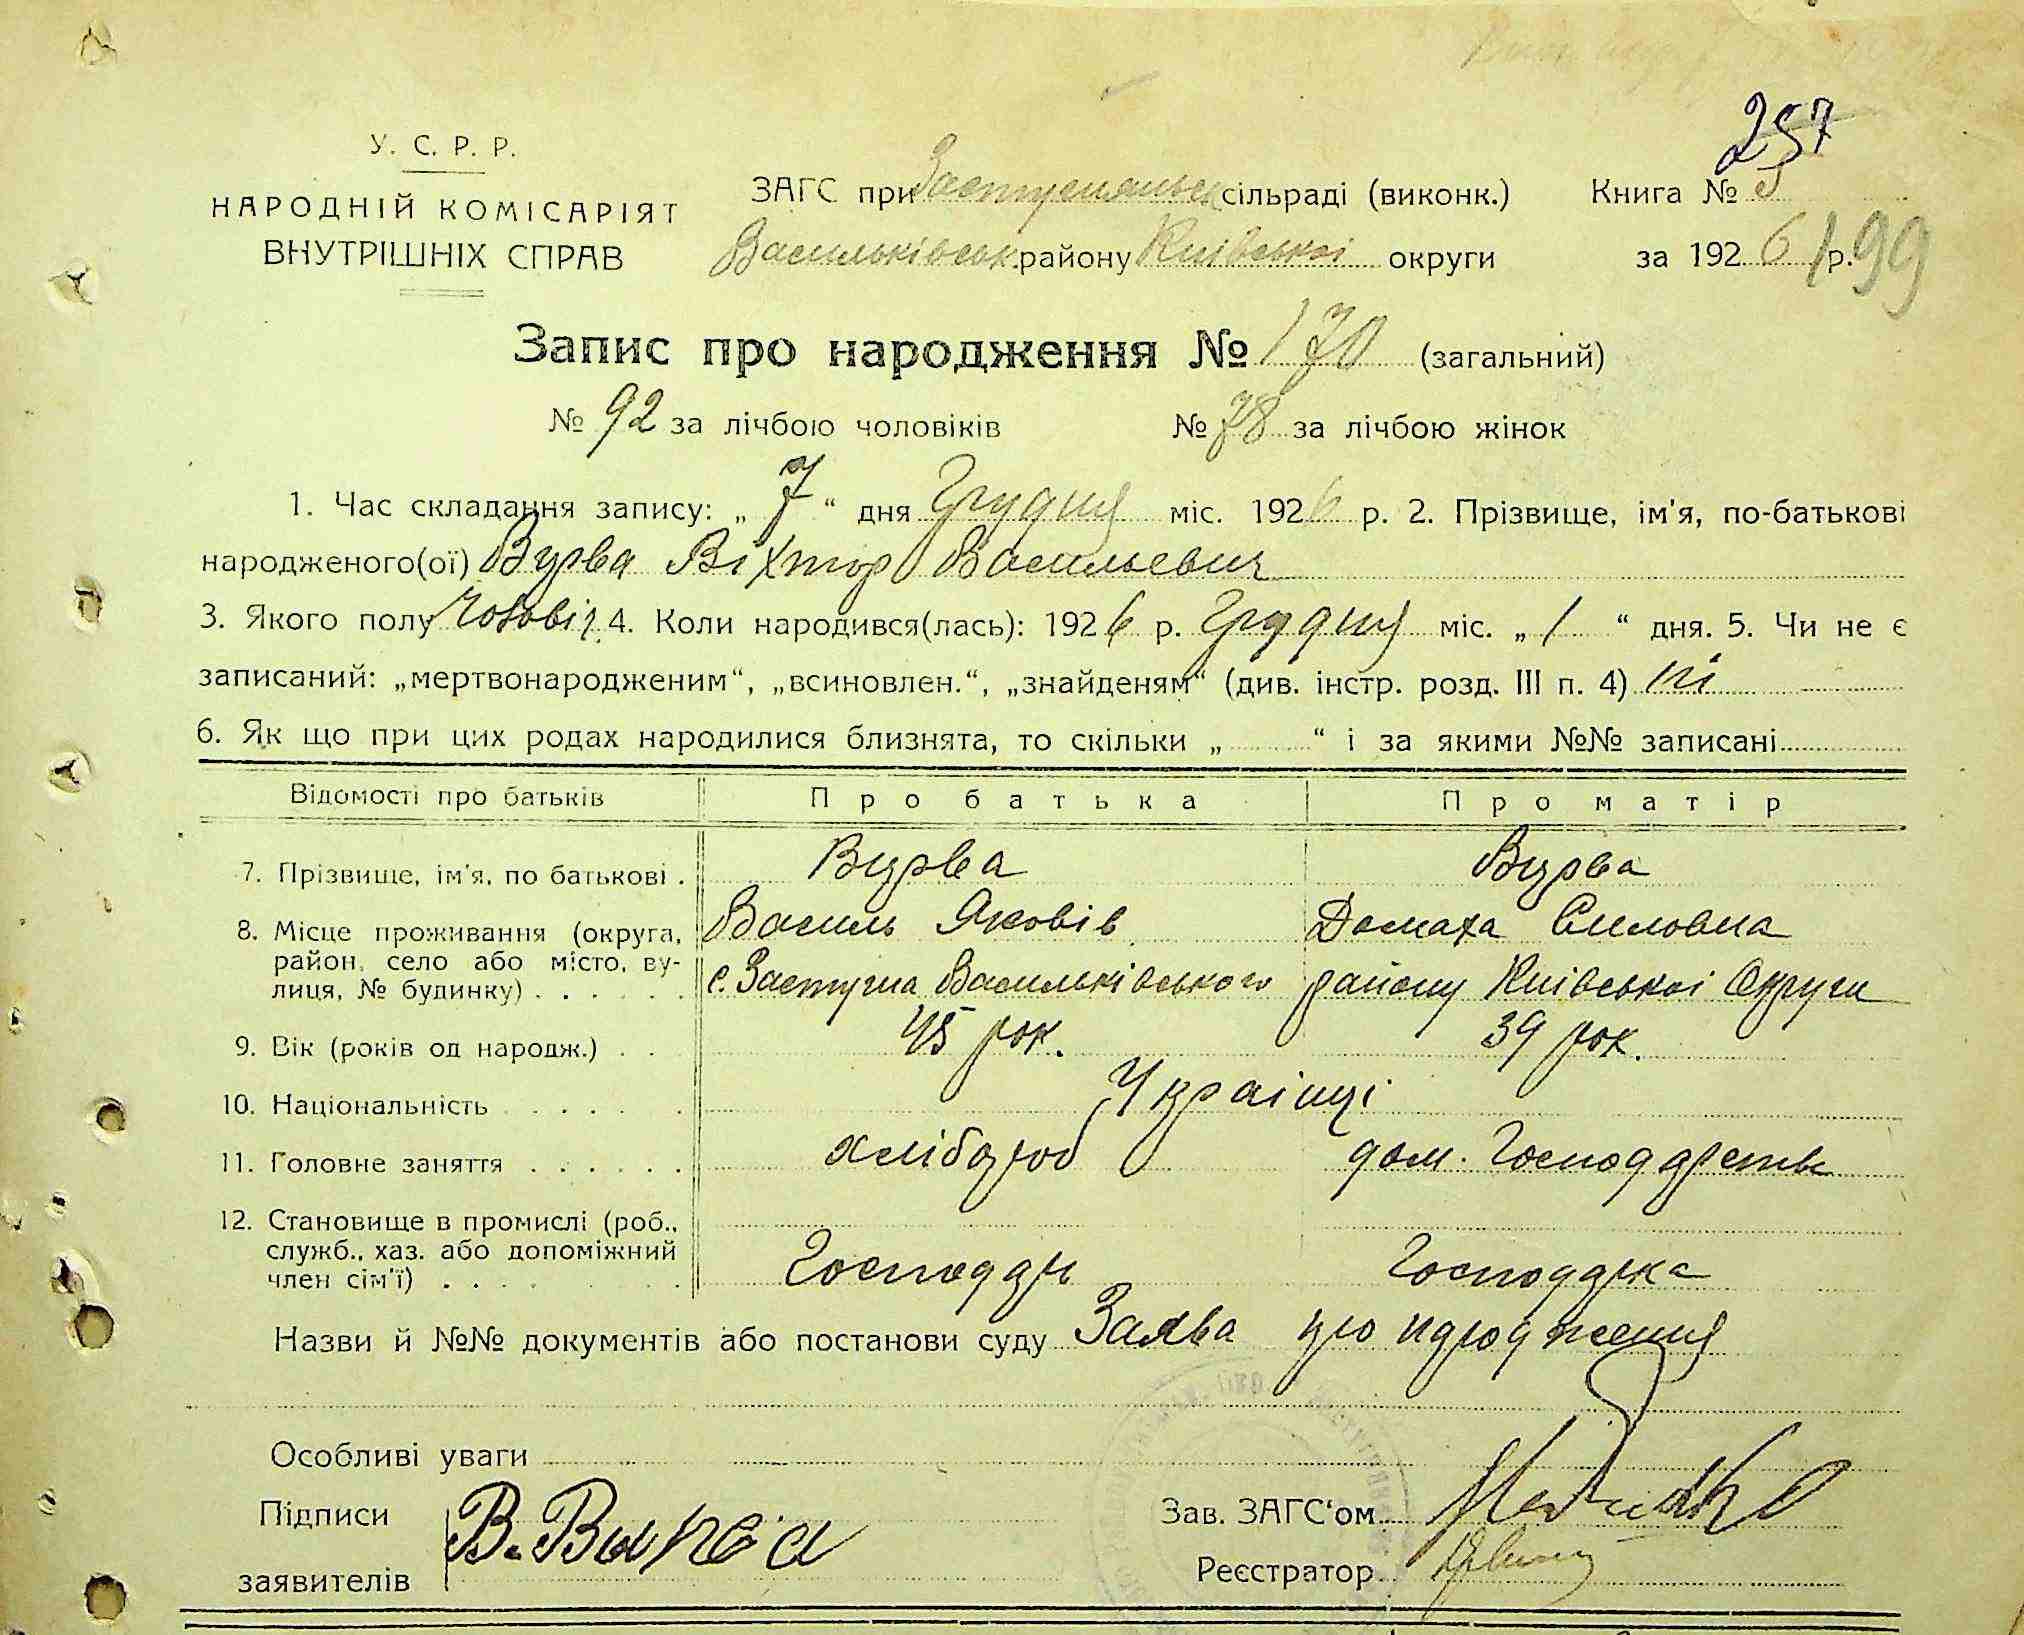 257
У. С. Р. Р.
НАРОДНІЙ КОМІСАРІЯТ
ВНУТРІШНІХ СПРАВ
ЗАГС при Застугнянськ сільраді (виконк.) Книга № 3
Васильківськ. району Київської округи за 1926 р. 199
Запис про народження № 170 (загальний)
№ 92 за лічбою чоловіків № 78 за лічбою жінок
1. Час складання запису: „ 7 “ дня Грудня міс. 1926 р. 2. Прізвище, ім'я, по-батькові
народженого(ої) Вурва Віхтор Васильевич
3. Якого полу чоловіч. 4. Коли народився(лась): 1926 р. Грудня міс. „ 1 “ дня. 5. Чи не є
записаний: „мертвонародженим“, „всиновлен.“, „знайденям“ (див. інстр. розд. III п. 4) ні
6. Як що при цих родах народилися близнята, то скільки „ “ і за якими №№ записані
Відомості про батьків Про батька Про матір
7. Прізвище, ім'я, по батькові . Вурва Вурва
8. Місце проживання (округа, Василь Яковів Домаха Силовна
район, село або місто, ву-
лиця, № будинку) . . . . . . с. Застугна Васильківського району Київської Округи
9. Вік (років од народж.) . . 45 рок. 39 рок.
10. Національність . . . . . . Українці
11. Головне заняття . . . . . . хлібороб дом. Господарств
12. Становище в промислі (роб.,
служб., хаз. або допоміжний
член сім'ї) . . . . Господар Господарка
Назви й №№ документів або постанови суду Заява про народження
Особливі уваги
Підписи В. Вурва Зав. ЗАГС'ом
заявителів Реєстратор